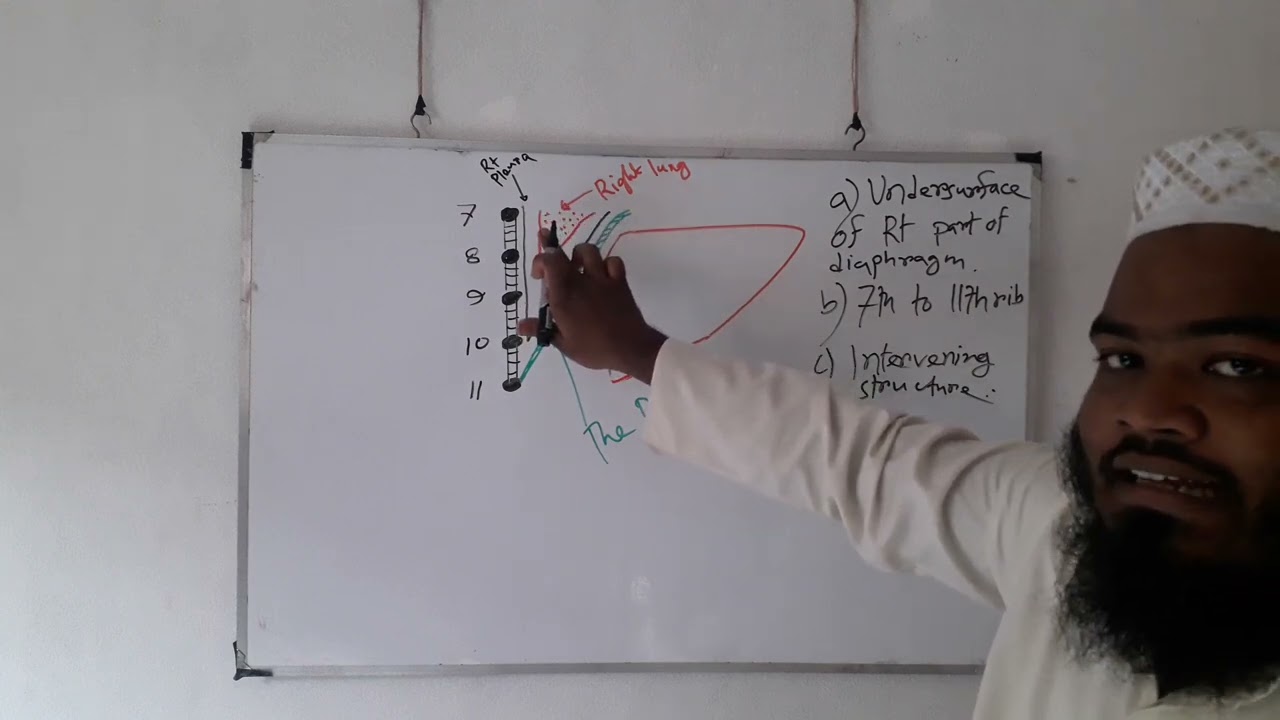 Rt
Pleura
Right lung
7
8
9
10
11
The
a) Undersurface
of Rt part of
diaphragm.
b) 7th to 11th rib
c) Intervening
structure.